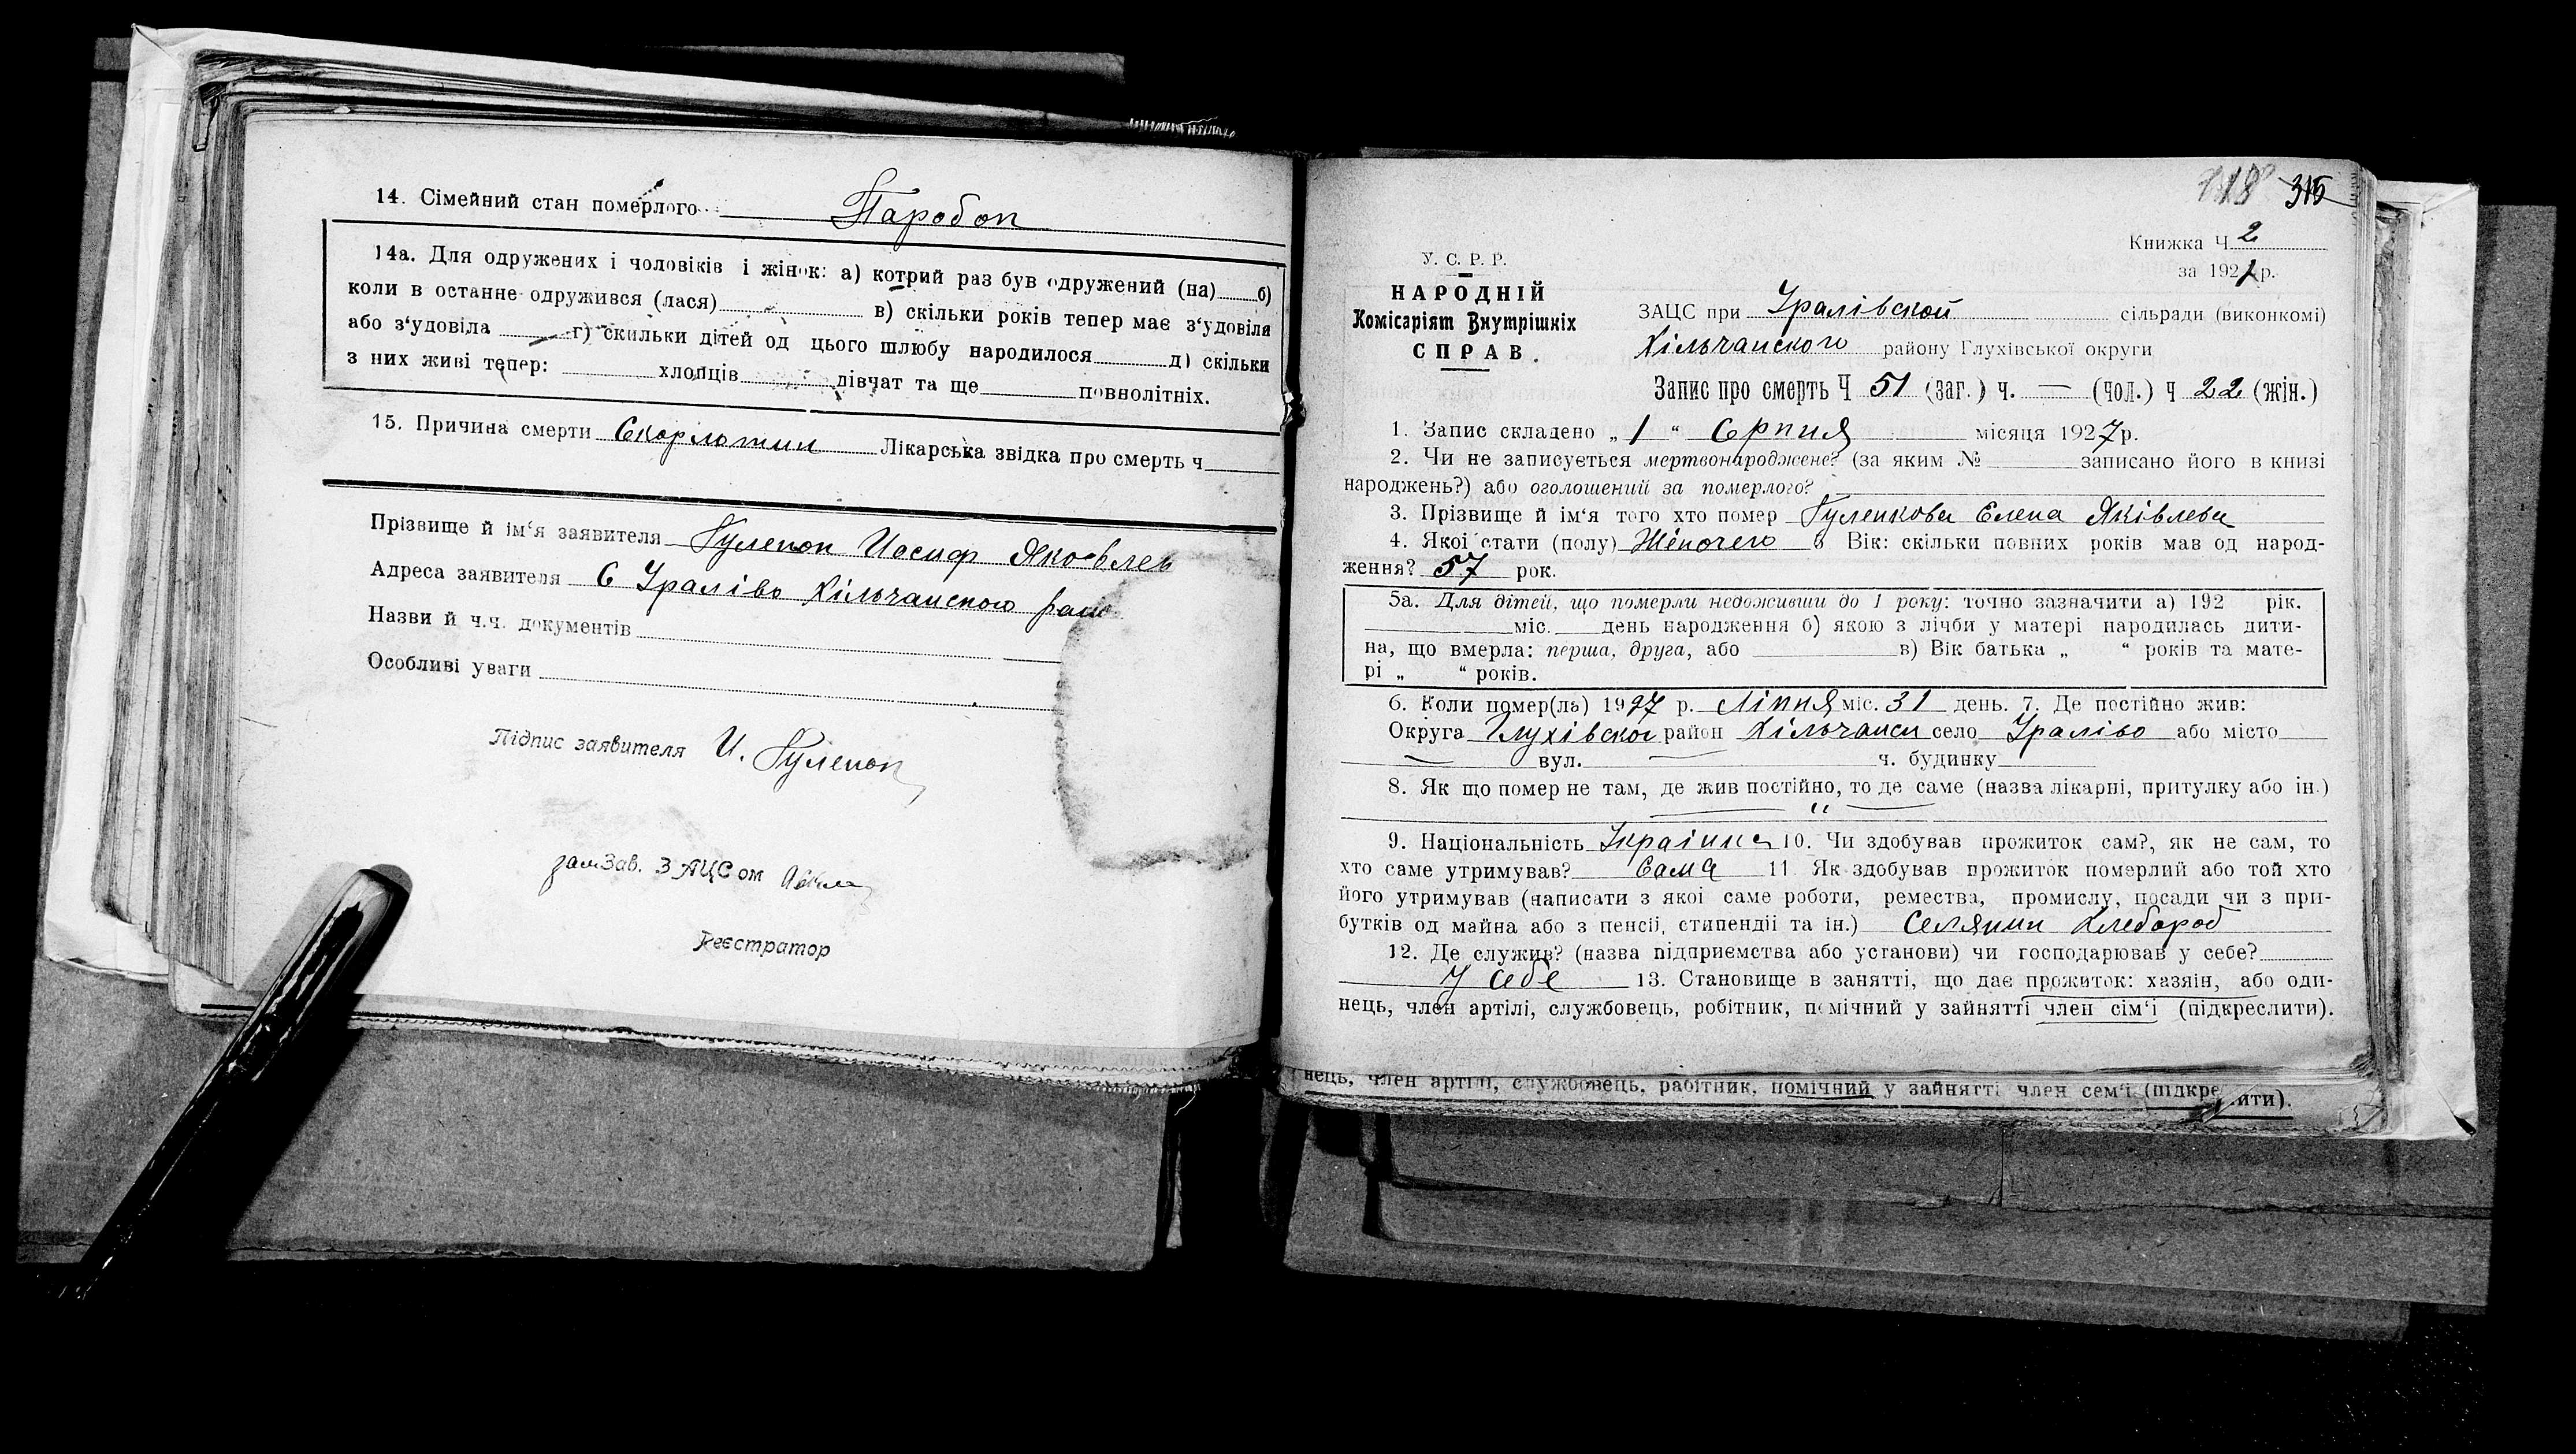 14. Сімейний стан померлого Паробок
14а. Для одружених і чоловіків і жінок: а) котрий раз був одружений (на) б)
коли в останне одружився (лася) в) скільки років тепер має з‘удовіля
або з‘удовіла г) скильки дітей од цього шлюбу народилося д) скільки
з них живі тепер: хлопців дівчат та ще повнолітніх.
15. Причина смерти Скорлотин Лікарська звідка про смерть ч
Прізвище й ім‘я заявителя Гуленок Иосиф Яковлев
Адреса заявителя С Ураліво Хільчанского рано
Назви й ч.ч. документів
Особливі уваги
Підпис заявителя И. Гуленок
замЗав. ЗАЦСом
Реєстратор
118 315
Книжка Ч 2
за 1927 р.
У. С. Р. Р.
НАРОДНІЙ
Комісаріят Внутрішніх
СПРАВ.
ЗАЦС при Уралівской сільради (виконкомі)
Хільчанского району Глухівської округи
Запис про смерть Ч 51 (заг.) ч. — (чол.) ч 22 (жін.)
1. Запис складено „ 1 “ Серпня місяця 1927 р.
2. Чи не записується мертвонароджене? (за яким № записано його в книзі
народжень?) або оголошений за померлого?
3. Прізвище й ім‘я того хто помер Гуленкова Елена Яківлева
4. Якої стати (полу) Жіночего 5 Вік: скільки повних років мав од народ-
ження? 57 рок.
5а. Для дітей, що померли недоживши до 1 року: точно зазначити а) 192 рік.
міс. день народження б) якою з лічби у матері народилась дити-
на, що вмерла: перша, друга, або в) Вік батька „ “ років та мате-
рі „ “ років.
6. Коли помер(ла) 1927 р. Ліпня міс. 31 день. 7. Де постійно жив:
Округа Глухівског район Хільчанск село Ураліво або місто
вул. ч. будинку
8. Як що помер не там, де жив постійно, то де саме (назва лікарні, притулку або ін.)
9. Національність Україинка 10. Чи здобував прожиток сам?, як не сам, то
хто саме утримував? Сама 11. Як здобував прожиток померлий або той хто
його утримував (написати з якої саме роботи, ремества, промислу, посади чи з при-
бутків од майна або з пенсії, стипендії та ін.) Селянин хлебороб
12. Де служив? (назва підприємства або установи) чи господарював у себе?
У себе 13. Становище в занятті, що дає прожиток: хазяін, або оди-
нець, член артілі, службовець, робітник, помічний у зайнятті член сім‘ї (підкреслити).
нець, член артілі, службовець, рабітник, помічний у зайнятті член сем‘ї (підкреслити).